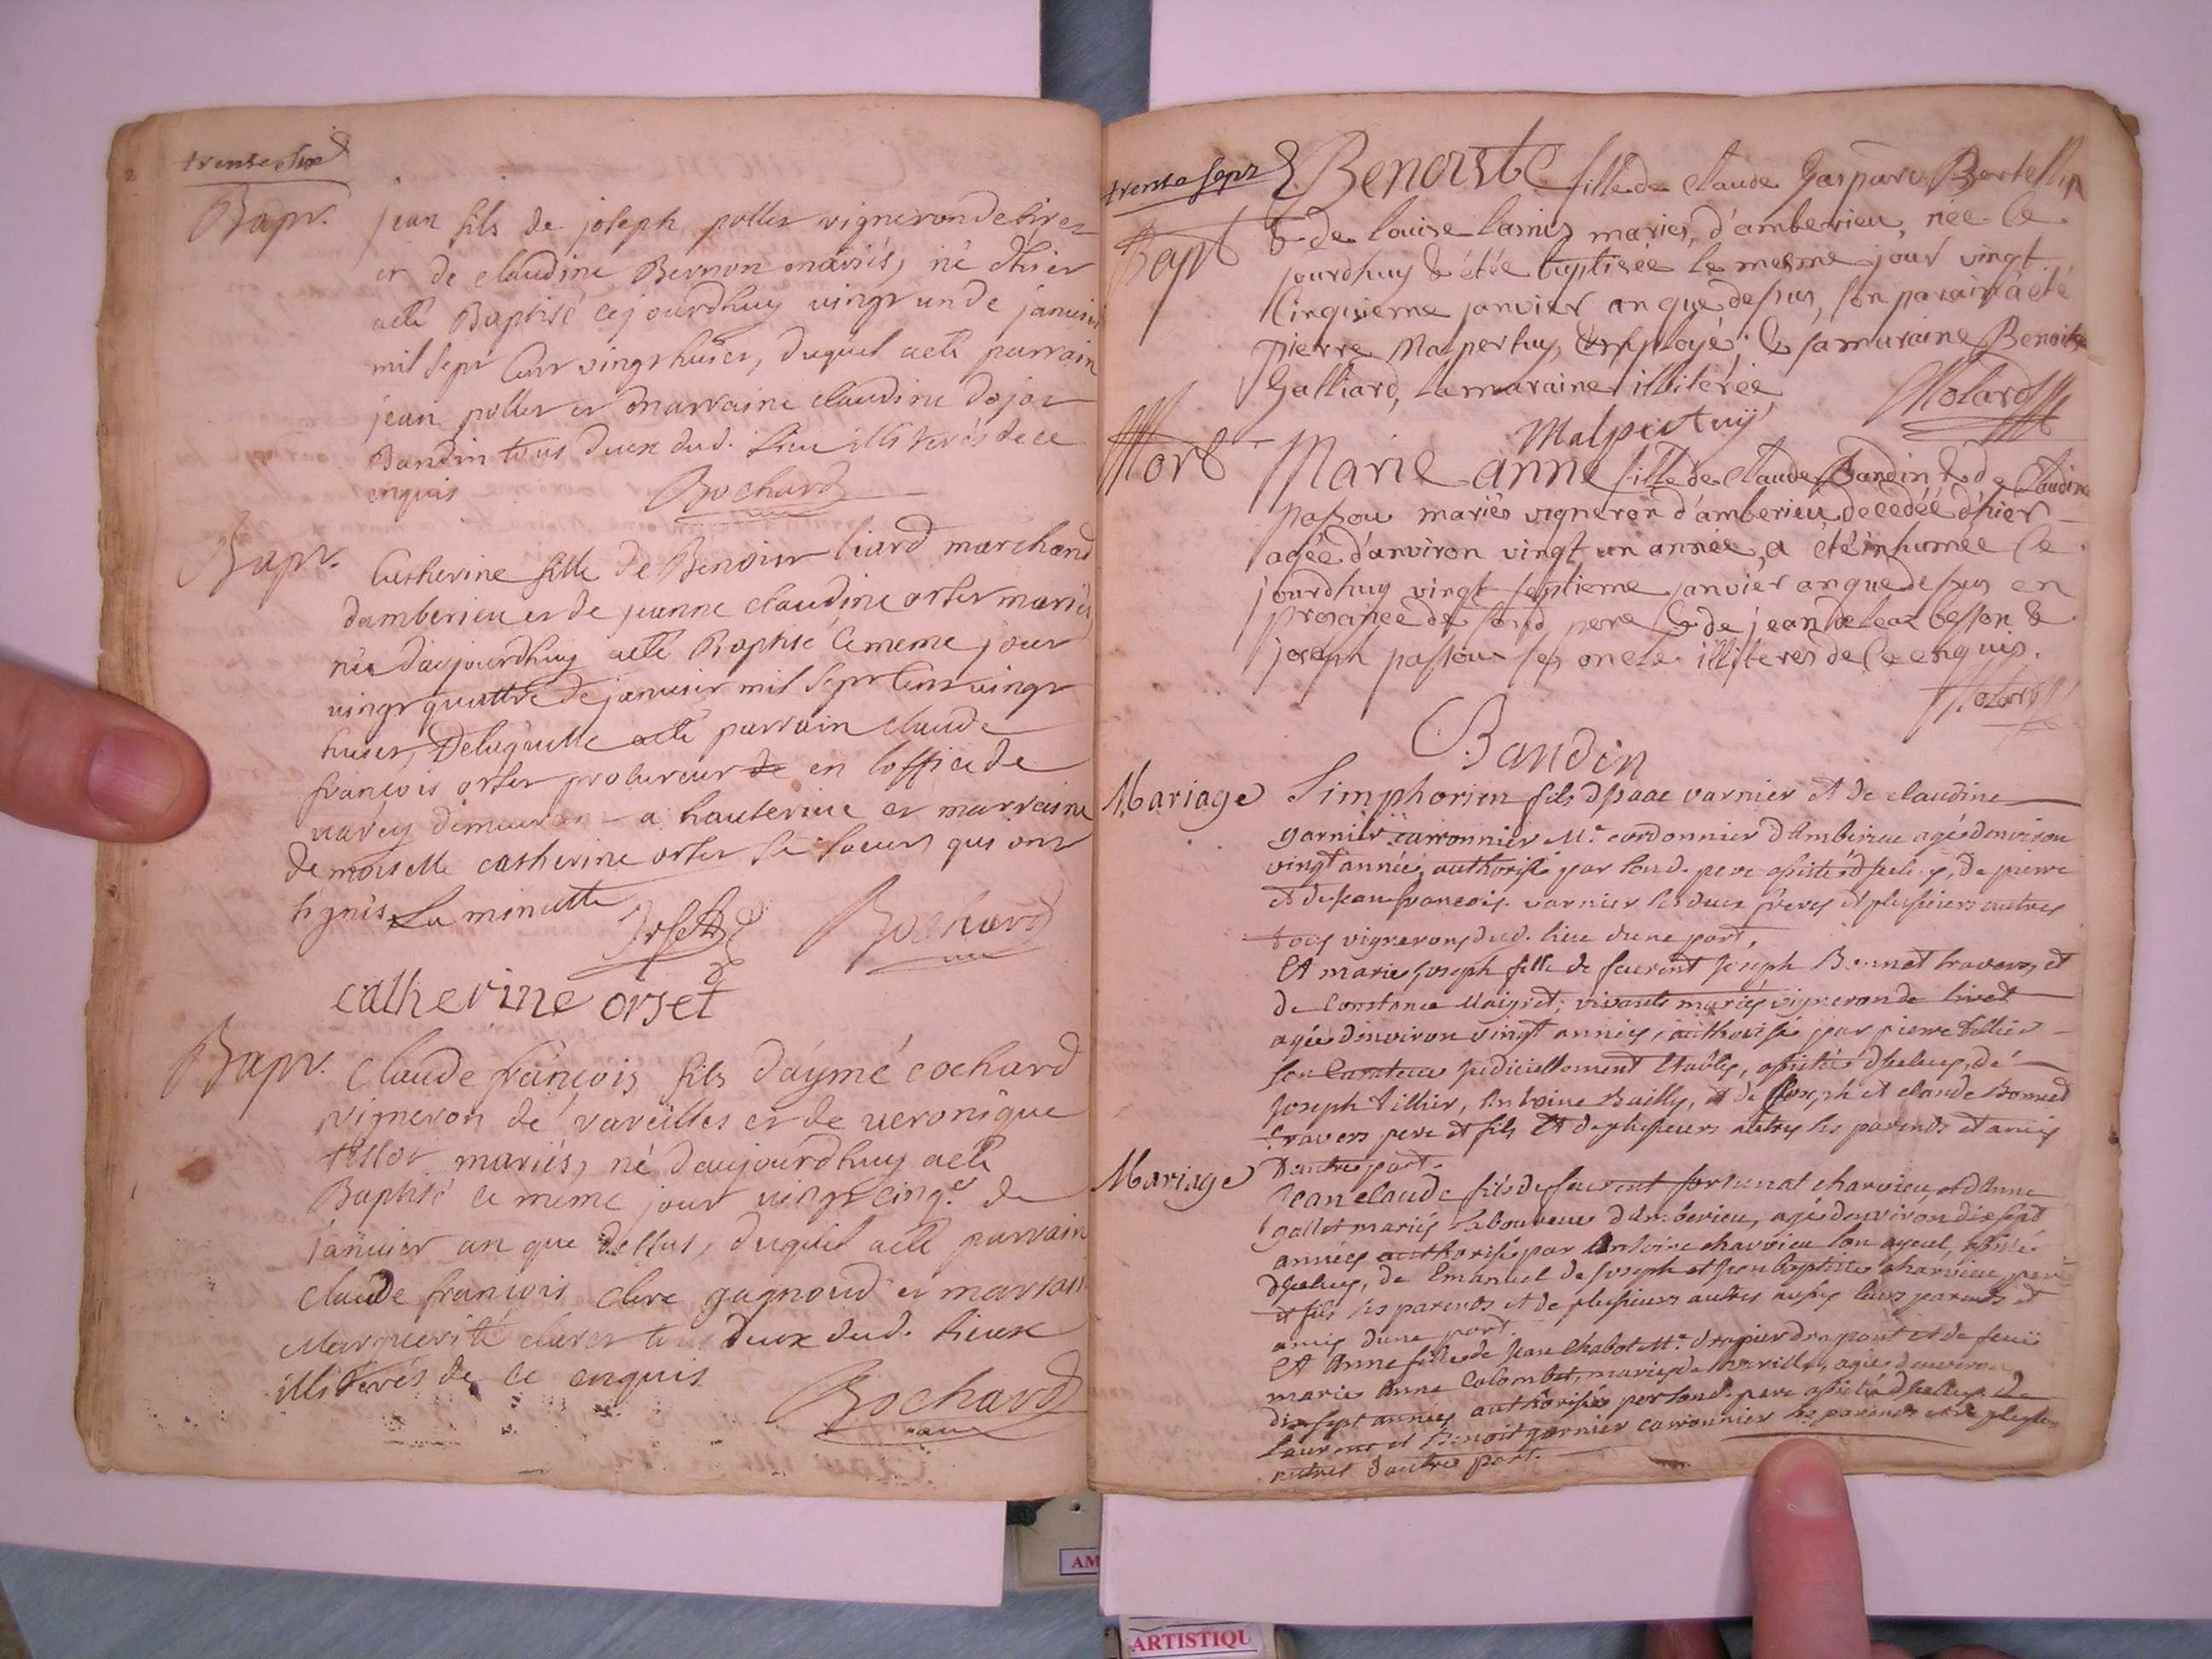 trente six
Bapt. jean fils de joseph pollet vigneron de livet
et de claudine Bernon mariés, né d'hier
a eté Baptisé cejourdhuy vingt un de janvier
mil sept cent vingt huict, duquel a eté parrain
jean pollet et marraine claudine
Bandin tous deux dud. lieu illiterés de ce
enquis Bochard
Bapt. Catherine fille de Benoist liard marchand
damberieu et de jeanne claudine orset mariés
née daujourdhuy a eté Baptisé le meme jour
vingt quattre de janvier mil sept cent vingt
huict, Delaquelle a eté parrain claude
françois orset procureur de en loffice de
varey demeurant a hauterive et marraine
demoiselle catherine orset sa soeur qui ont
signés la minutte
Orset Bochard
catherine orset
Bapt. Claude françois fils d'aymé cochard
vigneron de vareilles et de veronique
tissot mariés, né daujourdhuy a eté
Baptisé le meme jour vingt cinq.e de
janvier an que dessus, duquel a eté parrain
claude françois clerc gagnoud et marraine
Marguerite clerct tous deux dud. lieux
illiterés de ce enquis
Bochard
trente sept
Benoiste fille de claude Gaspard Bertellin
Bapt & de louise mariés, d'amberieu, née ce
jourdhuy & étée baptisée le mesme jour vingt
cinquieme janvier an que dessus, son parain a eté
pierre Malpertuy, employé; & sa maraine Benoite
Galliard, la maraine illitérée
Malpertuÿ Molard
Mort Marie anne fille de Claude Bandin & de Claudine
passou mariés vigneron d'amberieu, decedéé d'hier
agée d'anviron vingt un année, a eté inhumée ce
jourdhuy vingt septieme janvier an que dessus en
presance de sond pere & de jean besson &
joseph passou ses oncle illiteres de ce enquis.
Molard
Bandin
Mariage Simphorien fils d'Isaac varnier et de claudine
garnier carronnier M.e cordonnier d'Amberieu agé denviron
vingt années, authorisé par sond. pere assisté d'iceluy, de pierre
et de jean françois varnier ses deux freres et plusieurs autres
tous vignerons dud. lieu dune part,
Et marie joseph fille de feu Joseph Bonnet travers, et
de Constance Maigret; vivants mariés vigneron de livet
agée d'environ vingt années, authorisée par pierre tillier
son Curateur judiciellement Etably, assistée d'iceluy, de
Joseph tillier, Antoine Bailly, et de Joseph et claude Bonnet
travers pere et fils et de plusieurs autres ses parents et amis
dautre part.
Mariage Jean claude fils de feu fortunat charvieu, et d'Anne
gallet mariés laboureur d'Amberieu, agé denviron dix sept
années authorisé par Antoine charvieu son ayeul, assisté
d'iceluy, de Emanuel de joseph et jean baptiste charvieu pere
et fils ses parents et de plusieurs autres aussy leurs parents et
amis dune part.
Et Anne fille de Jean Chabot M.e drapier drapant et de feue
marie Anne Colombet, mariés de vareilles, agée denviron
dix sept années authorisée par sond. pere assistée d'iceluy, de
Laurent et Benoit garnier carronnier ses parents et de plusieurs
autres dautre part.
AM
ARTISTIQU